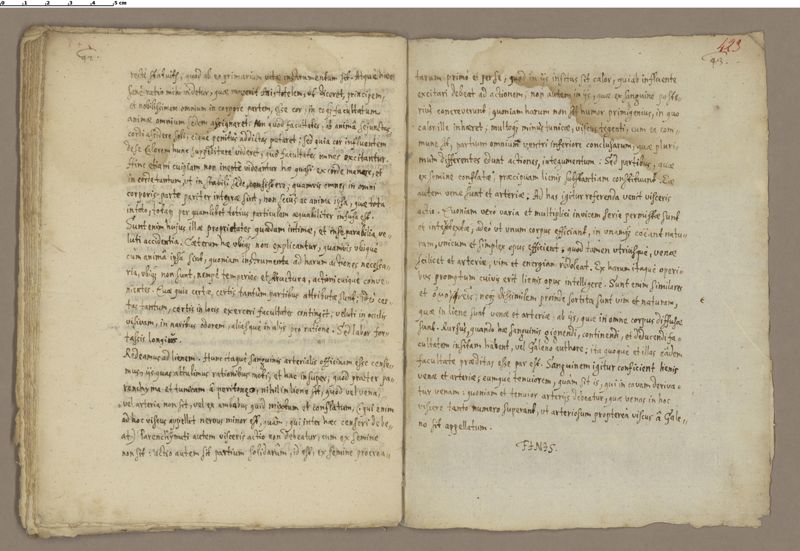 42.
recte statuit, quod ab ex primarium vitae instrumentum sit. Atque haec
ratio mihi videtur, quae Aristotelem, ut diceret, principem,
et nobilissimam omnium in corpore partem, esse cor, in eo facultatum
animae omnium sedem assignaret: non quod facultates, ab anima
cordis assidere soli, eique penitus addictas putaret: sed quia cor influentem
de se calorem hunc suppeditare videret, quo facultates omnes excitantur.
Hinc etiam cuipiam non inepte videantur hae quasi ex corde manare, et
in corde tantum, ut in stabili sede, consistere; quamvis omnes in omni
corporis parte pariter integrae sint, non secus ac anima ipsa, quae tota
in toto, totaque per quamlibet totius particulam aequabiliter infusa est.
Sunt enim huius illae proprietates quaedam intimae, et inseparabilia ve-
luti accidentia. Caeterum hae ubique non explicantur, quamvis ubique
cum anima ipsa sint, quoniam instrumenta ad harum actiones necessa-
ria, ubique non sunt, nempe temperies et structura, actioni cuique conve-
nientes. Quae quia certae, certis tantum partibus attributae sunt; certis
tantum, certis in locis exerceri facultates contingit; veluti in oculis
visivam, in naribus odorem, aliasque in aliis pro ratione. Sed labor for-
tassis longius.
Redeamus ad lienem. Hunc itaque sanguinis arterialis officinam esse cense-
mus, iisque attulimus rationibus moti, et hac insuper, quod praeter pa-
renchyma et tunicam a peritoneo, nihil in liene sit, quod vel vena,
vel arteria non sit, vel ex ambabus quid mixtum et conflatum, (qui enim
ad hoc viscus appellit nervus minor est, quam, qui inter haec censeri debe-
at.) Parenchymati autem visceris actio non debeatur, cum ex semine
non sit: actio autem sit partium solidarum, id est, ex semine procrea-
423
43.
tarum primo et per se, quod in iis insitus sit calor, qui ab influente
excitari debeat ad actionem, non autem in iis, quae ex sanguine poste-
rius concreverunt, quoniam harum non sit humor primigenius, in quo
calor ille inhaeret, multoque minus tunicae, viscus tegenti, cum ea com-
munis sit, partium omnium ventri inferiore conclusarum, quae pluri-
mum differentes edunt actiones, integumentum: Sed partibus, quae
ex semine conflatae, praecipuam lienis substantiam constituunt. Eae
autem venae sunt et arteriae. Ad has igitur referenda venit visceris
actio. Quoniam vero varia et multiplici invicem serie permistae sunt
et intertextae, adeo ut unum corpus efficiant, in unamque coeant natu-
ram, unicum et simplex opus efficient, quod tamen utriusque, venae
scilicet et arteriae, vim et energiam redoleat. Ex harum itaque operi-
bus promptum cuivis erit lienis opus intelligere. Sunt enim similares
et neque dissimilem proinde sortita sunt vim et naturam,
quae in liene sunt venae et arteriae, ab iis, quae in omne corpus diffusae
sunt. Rursus, quando hae sanguinis gignendi, continendi, et deducendi fa-
cultatem insitam habent, vel Galeno authore; ita quoque et illas eadem
facultate praeditas esse par est. Sanguinem igitur conficient lienis
venae et arteriae, eumque tenuiorem, quam sit is, qui in cavam deriva-
tur venam: quoniam et tenuior arteriis debeatur, quae venas in hoc
viscere tanto numero superant, ut arteriosum propterea viscus a Gale-
no sit appellatum.
FINIS.
0 1 2 3 4 5 cm